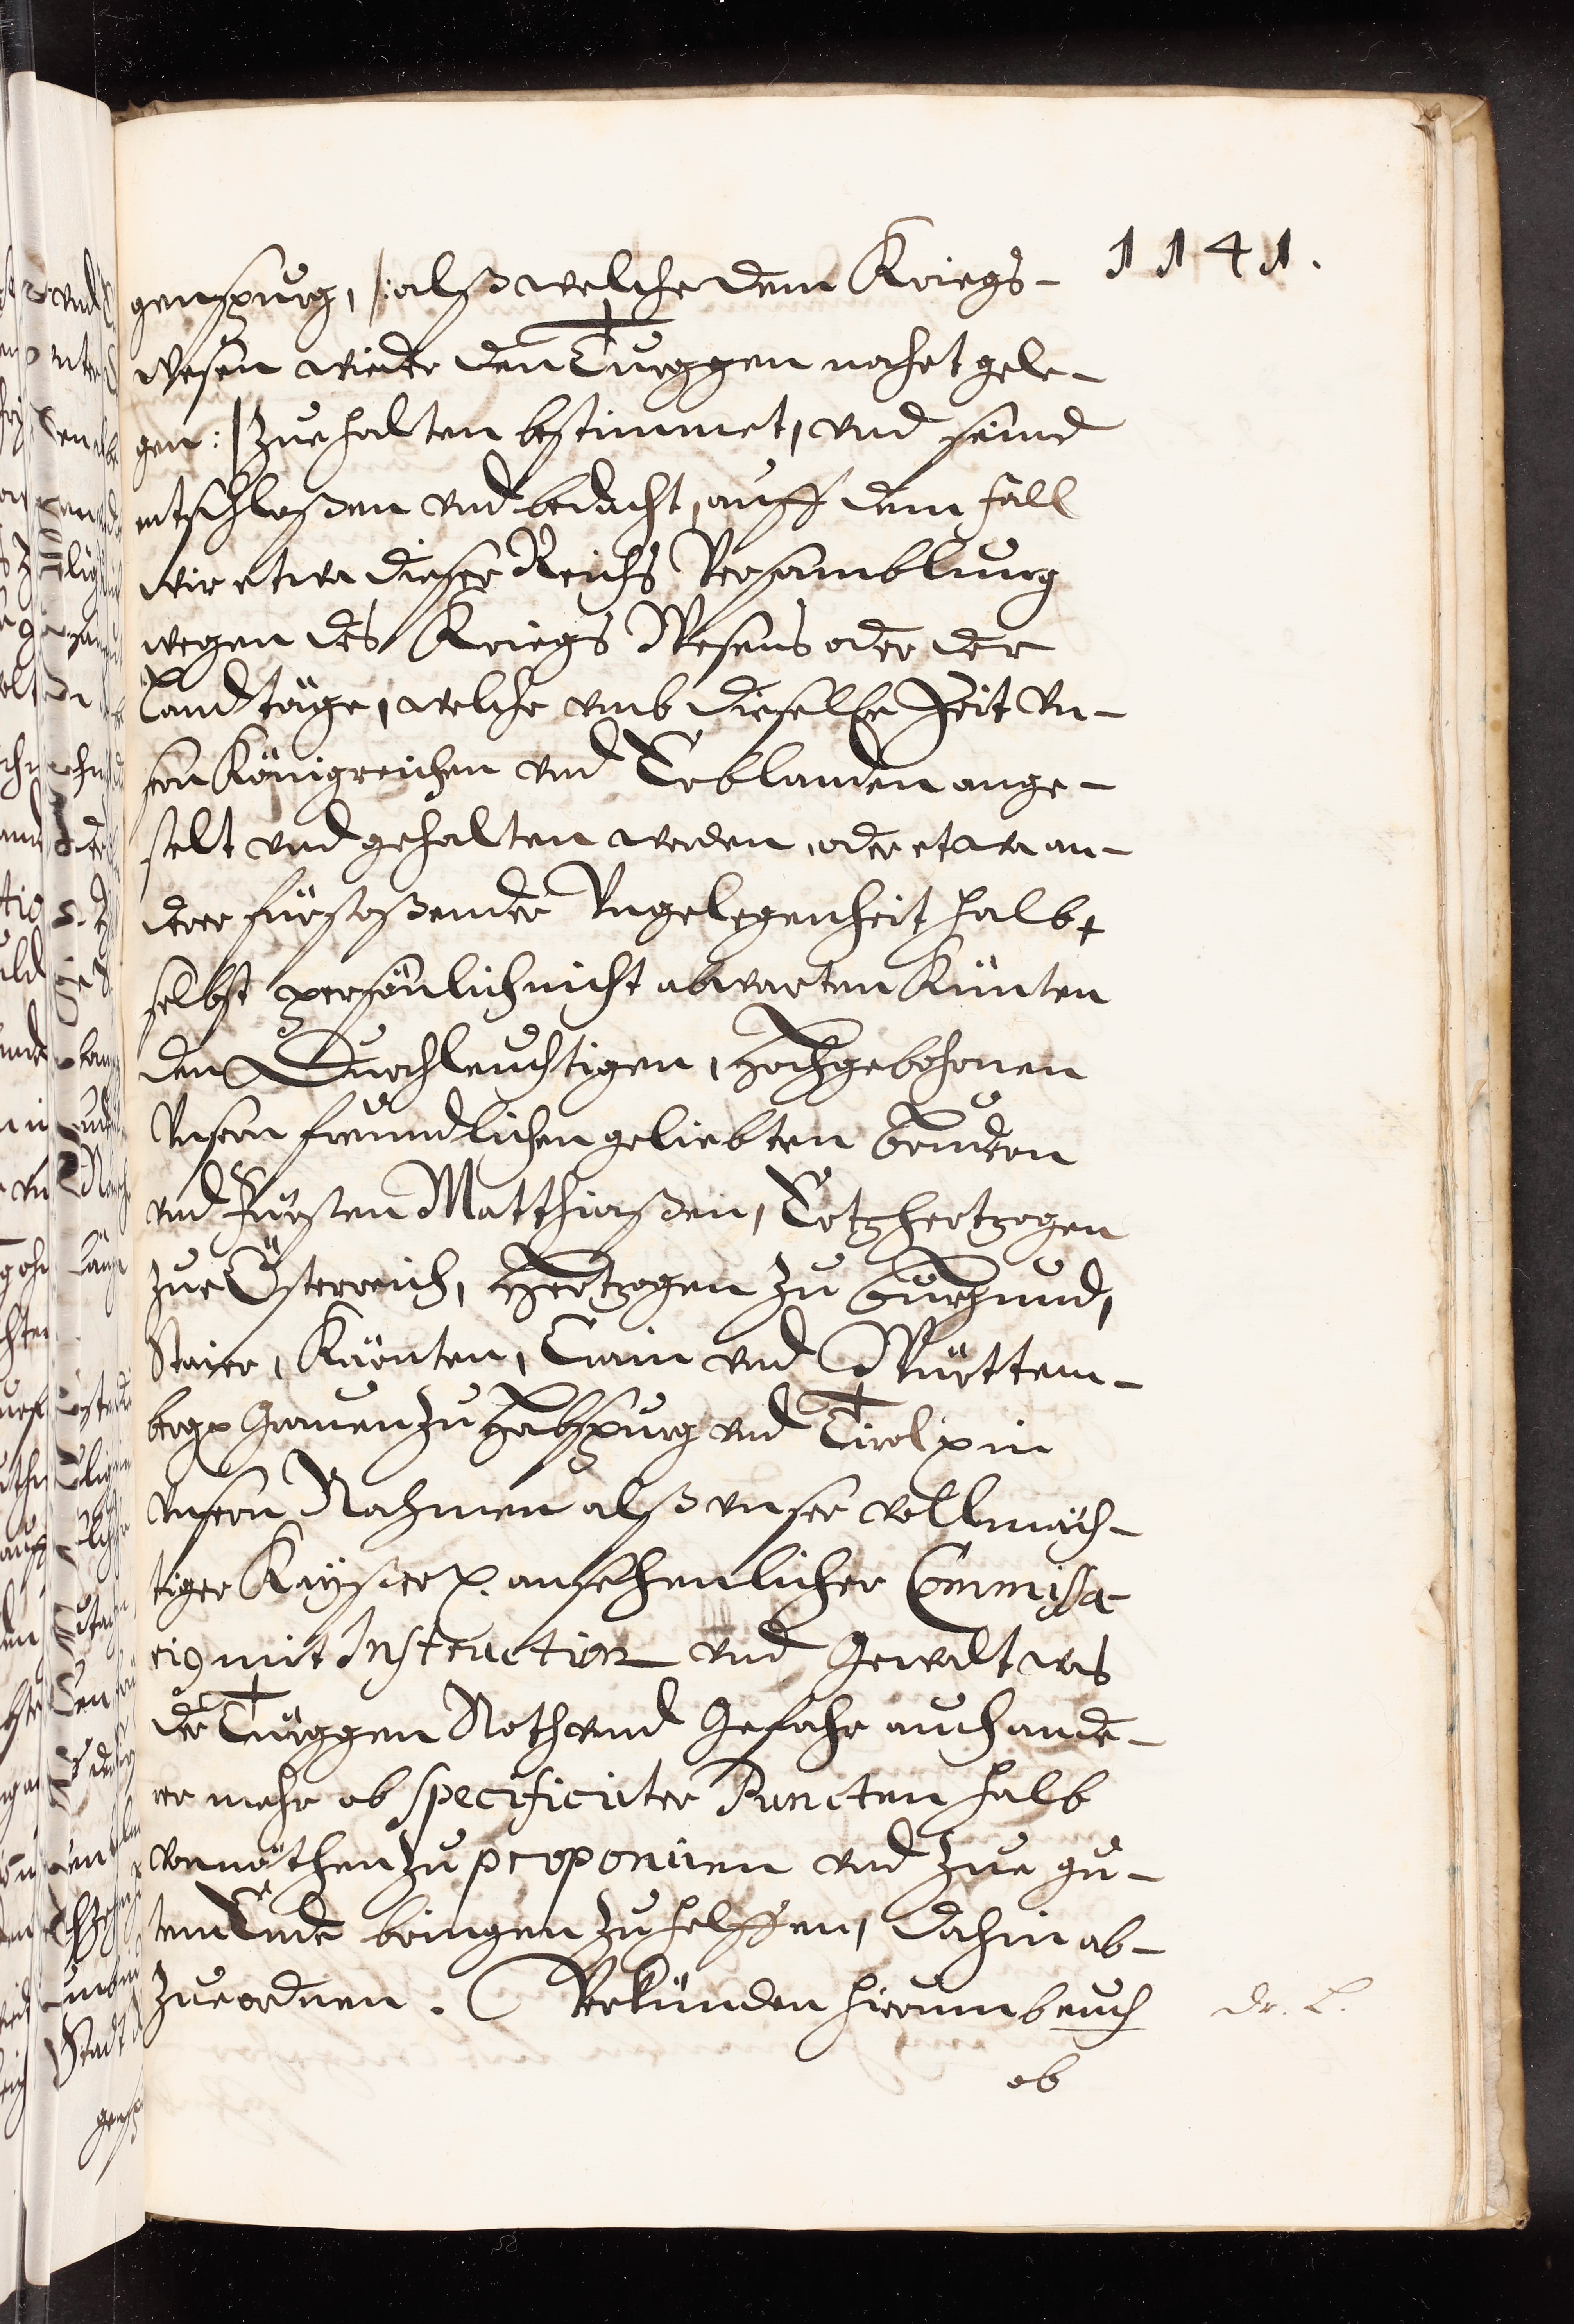 1141.
genspurg, /: alß welche dem Kriegs-
wesen wieder den Türggen nahet gele-
gen :/ zue halten bestimmet, vnd seind
entschloßen vnd bedacht, auff dem fall
wir etwa dieser Reichs Versamblung
wegen des Kriegs Wesens oder der
Landtäge, welche vmb dieselbe Zeit Vn-
sern Königreichen vnd Erblanden ange-
stelt vnd gehalten werden, oder etwa an-
derer fürstoßender Vngelegenheit halb
selbst persönlich nicht abwarten künten
den Durchleuchtigen, Hochgebohrnen
Vnsern freundlichen geliebten brudern
vnd Fürsten Matthiaßen, Ertzhertzogen
zue Österreich, Hertzogen zu burgund,
Steier, Kärnten, Crain vnd Württem-
berg Grauen zu Habspurg vnd Tirol in
vnsern Nahmen alß vnser vollmäch-
tiger Kayßer. ansehenlicher Commissa-
rig mit Instruction vnd Gewalt was
der Türggen Noth vnd Gefahr auch ande-
rer mehr ob specificirter Puncten halb
vonnöthen zu proponiren vnd zue gu-
tem Ende bringen zu helffen, dahin ab-
zueordnen. Verkünden hierumb euch
dr. L.
ob